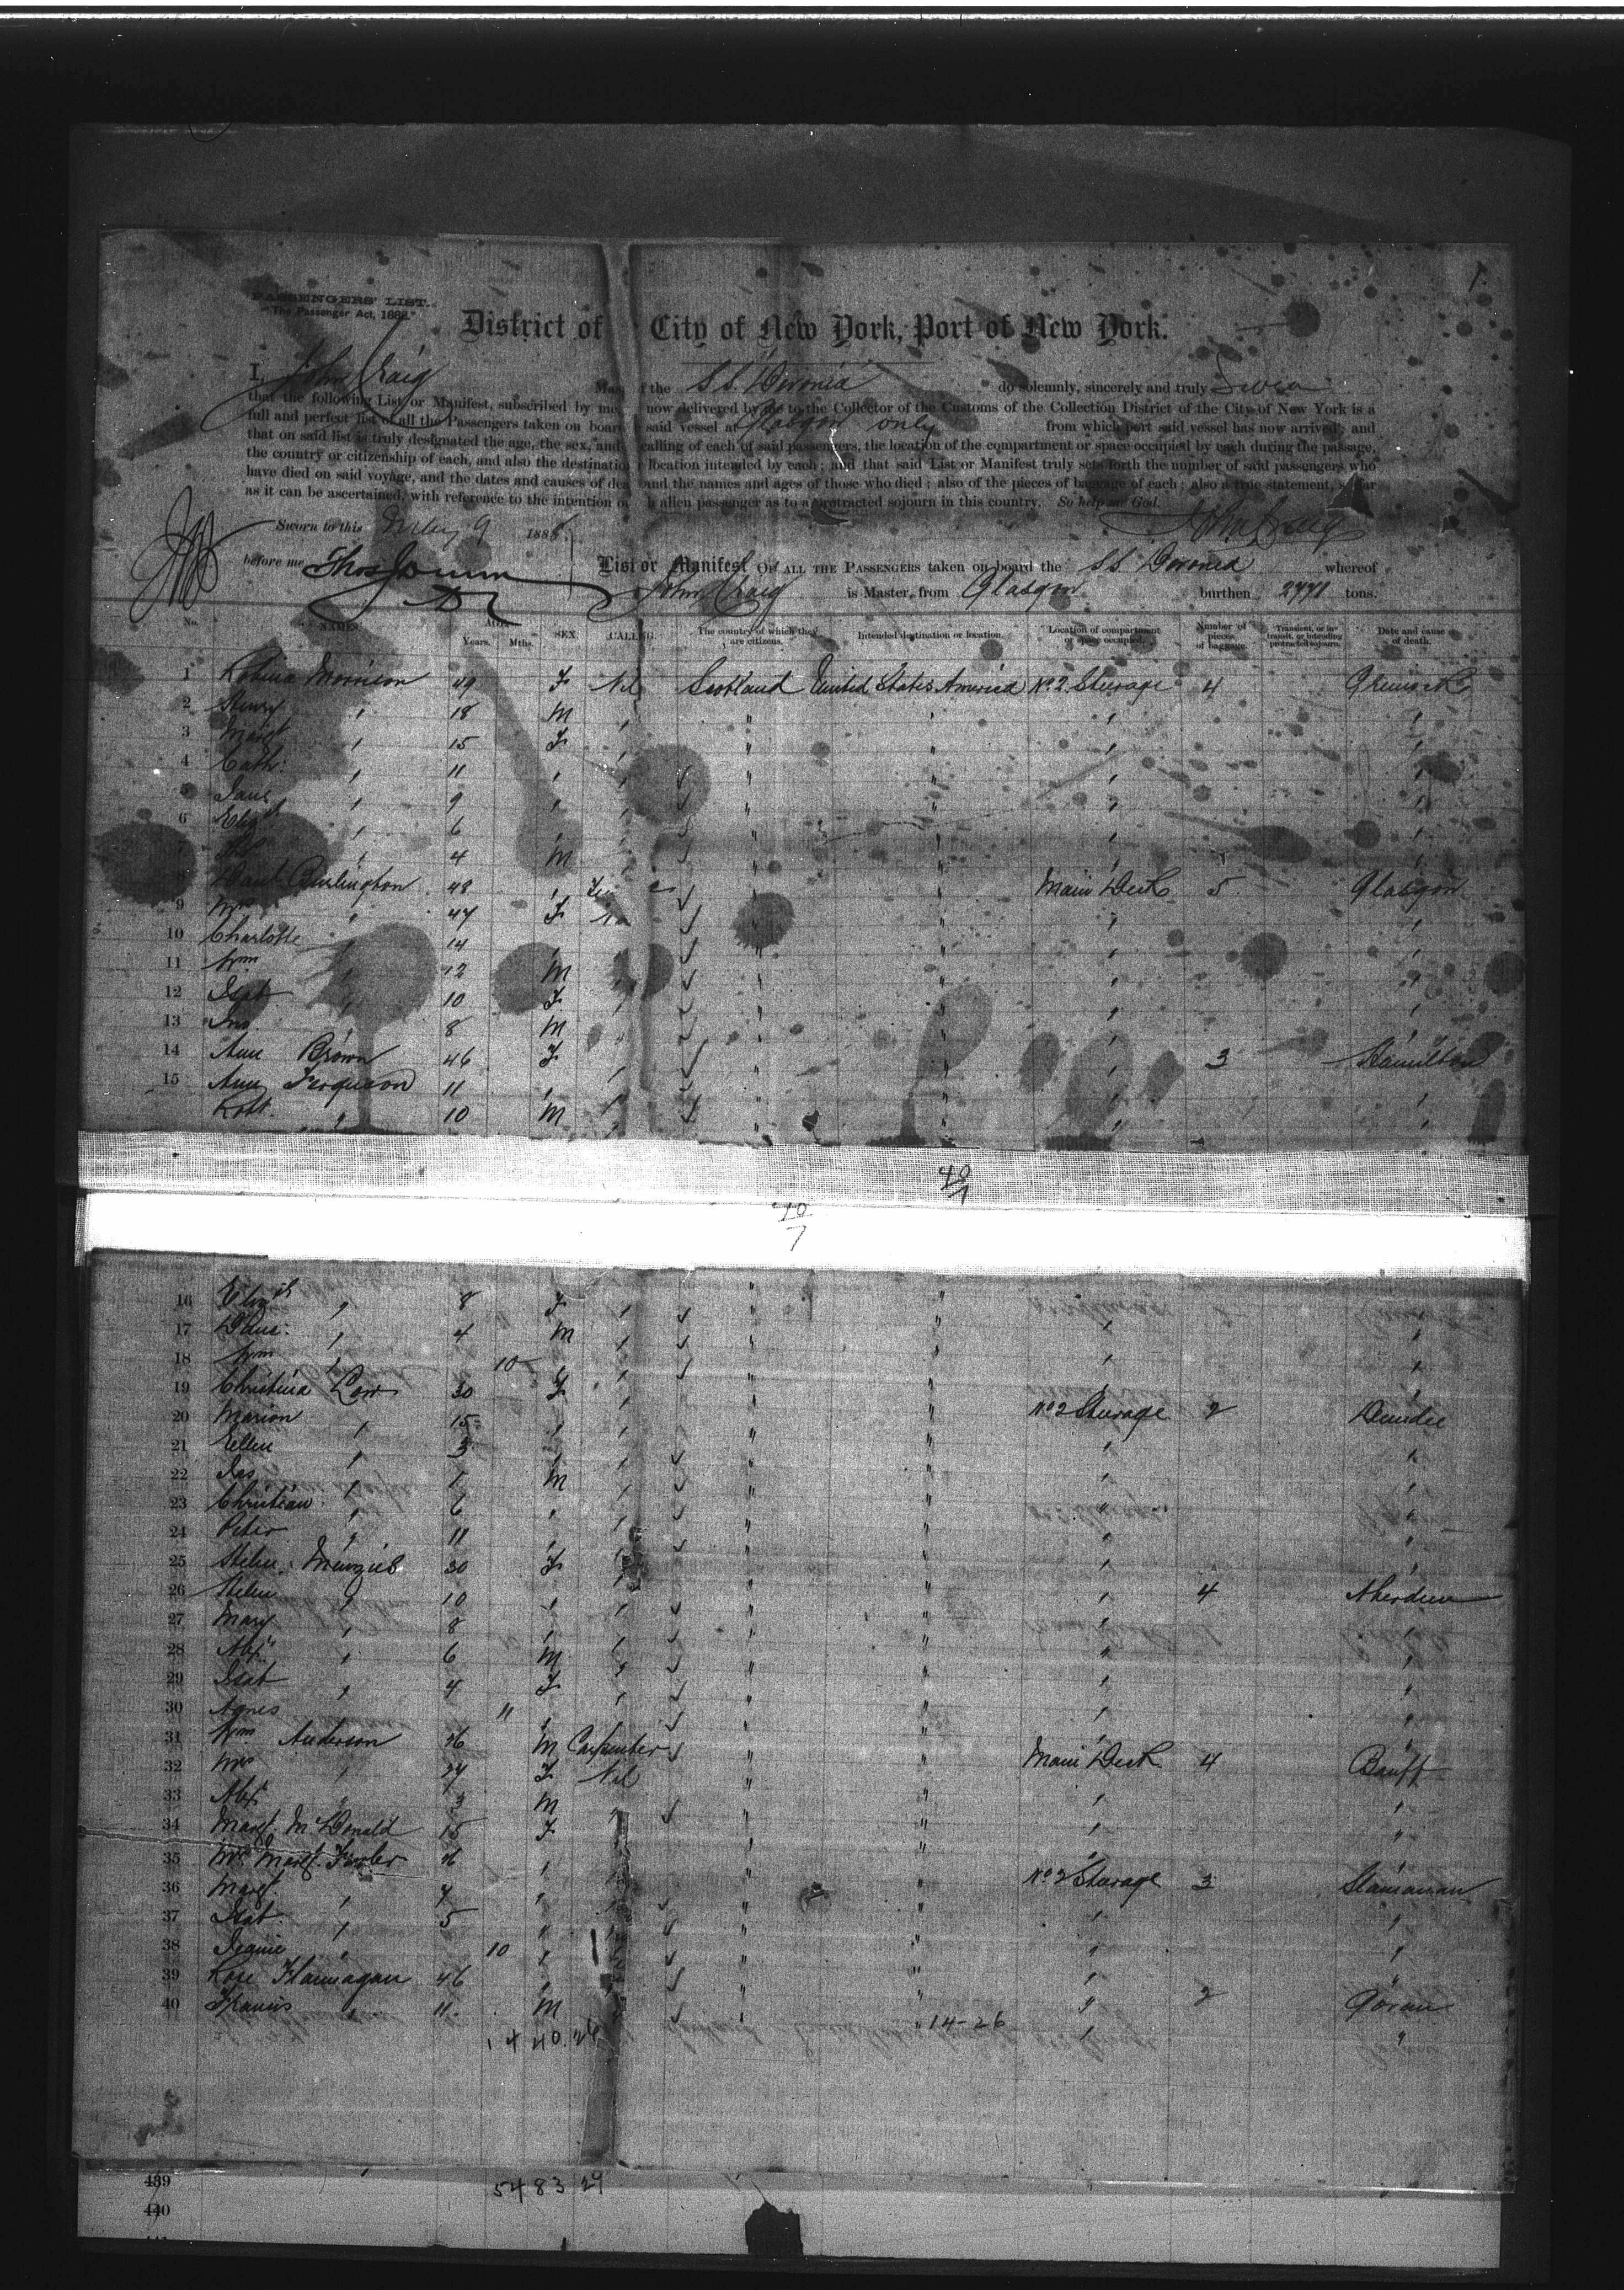 1.
PASSENGERS' LIST.
"The Passenger Act, 1882."
District of City of New York, Port of New York.
I, John Craig Mas f the S.S. Devonia do solemnly, sincerely and truly Swear
that the following List or Manifest, subscribed by me, now delivered by me to the Collector of the Customs of the Collection District of the City of New York is a
full and perfect list of all the Passengers taken on board said vessel at Glasgow only from which port said vessel has now arrived; and
that on said list is truly designated the age, the sex, and calling of each of said passengers, the location of the compartment or space occupied by each during the passage,
the country or citizenship of each, and also the destination location intended by each; and that said List or Manifest truly sets forth the number of said passengers who
have died on said voyage, and the dates and causes of dea and the names and ages of those who died; also of the pieces of baggage of each; also a true statement, so far
as it can be ascertained, with reference to the intention o h alien passenger as to a protracted sojourn in this country. So help me God.
Sworn to this May 9 188 John Craig
before me
List or Manifest OF ALL THE PASSENGERS taken on board the S.S. Devonia whereof
John Craig is Master, from Glasgow burthen 2771 tons.
No. NAMES. AGE. Years. Mths. SEX. CALLING. The country of which they are citizens. Intended destination or location. Location of compartment or space occupied. Number of pieces of baggage. Transient, or in transit, or intending protracted sojourn. Date and cause of death.
1 Robina Morrison 49 F Nil Scotland United States America No. 2 Steerage 4 Greenock
2 Henry " 18 M " " " " "
3 Margt " 15 F " " " " "
4 Cath: " 11 " " " " " "
5 Jane " 9 " " " " " "
6 Elizth " 6 " " " " " "
7 " 4 M " " " " "
8 Danl 48 " " " Main Deck 5 Glasgow
9 Mrs " 47 F " " " "
10 Charlotte " 14 " " " " " "
11 Wm " 12 M " " " " "
12 Isab " 10 F " " " " "
13 Jno. " 8 M " " " " "
14 Ann Brown 46 F " " " " 3 Hamilton
15 Ann Ferguson 11 " " " " " "
Robt. " 10 M " " " " "
40/1
40/7
16 Elizth " 8 F " " " " "
17 " 4 M " " " " "
18 Wm " 10 " " " " " "
19 Christina Low 30 F " " " No 2 Steerage 2 Dundee
20 Marion " 15 " " " " " "
21 Ellen " 3 " " " " " "
22 Jas " 1 M " " " " "
23 Christian " 6 " " " " " "
24 Peter " 11 " " " " " "
25 Helen Menzies 30 F " " " " 4 Aberdeen
26 Helen " 10 " " " " " "
27 Mary " 8 " " " " " "
28 Alexr " 6 M " " " " "
29 Isab " 4 F " " " " "
30 Agnes " 11 " " " " " "
31 Wm Anderson 26 M Carpenter " " Main Deck 4 Banff
32 Mrs " 27 F Nil " " " "
33 Alexr " 3 M " " " " "
34 Margt. McDonald 15 F " " " " "
35 Mrs Margt. 26 " " " " No 2 Steerage 3 Slamanan
36 Margt. " 7 " " " " " "
37 Isab. " 5 " " " " " "
38 Jeanie " 10 " " " " " "
39 Rose Flannagan 46 " " " " " 2 Govan
40 Francis " 11. M " " " " "
14 40 26 14-26
439 5483 29
440